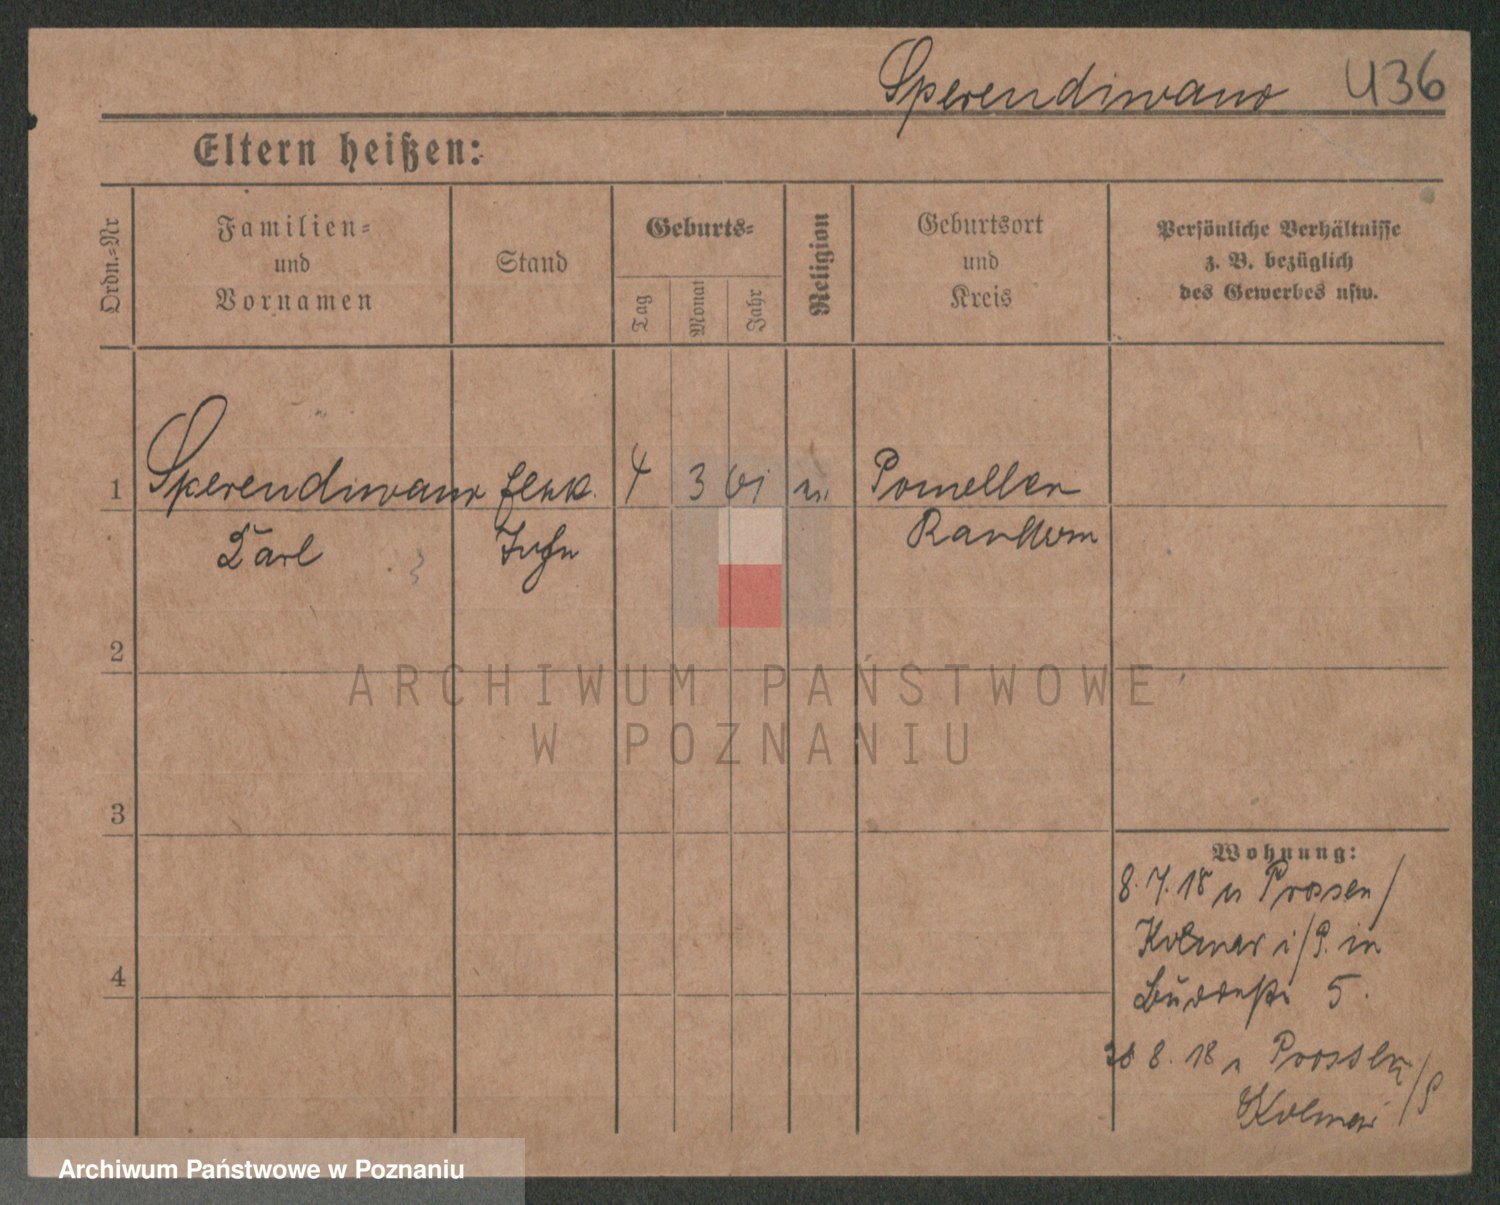 Sperendiwano 436
Eltern heißen:
Ordn.-Nr
Familien-
und
Vornamen
Stand
Geburts-
Tag
Monat
Jahr
Religion
Geburtsort
und
Kreis
Persönliche Verhältnisse
z. B. bezüglich
des Gewerbes usw.
1 Sperendiwano 4 3 61 Pomellen
Karl Randow
2
3
4
Wohnung:
8. 7. 18 n Prossen/
Kolmar i/P. in
5.
8. 18 n
Kolmar /P
ARCHIWUM PAŃSTWOWE
W POZNANIU
Archiwum Państwowe w Poznaniu